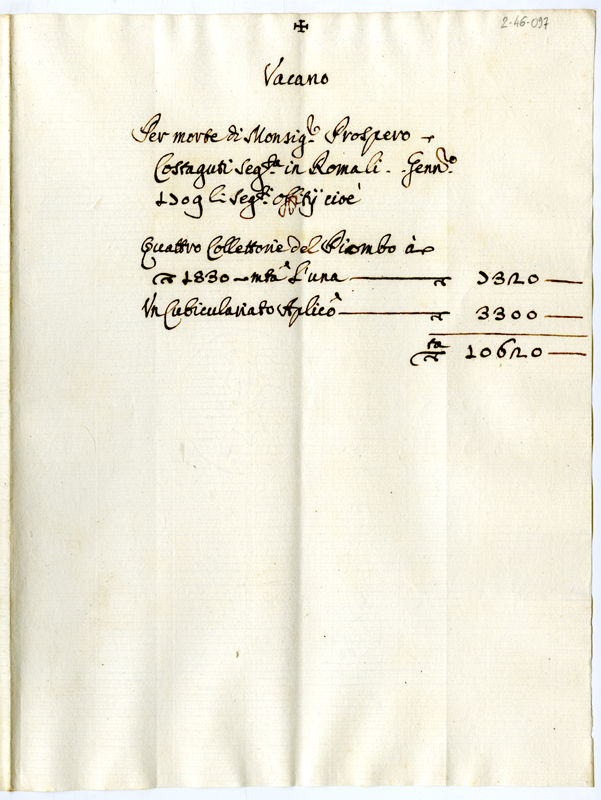 2-46-097
✠
Vacano
Per morte di Monsig.r Prospero
Costaguti Seg.ta in Roma li - Genn.o
1709 li Seg.ti Offitij cioè
Quattro Collettorie del Piombo à
▽ 1830 - mta L'una ——— ▽ 7320 —
Un Cubiculariato Aplico ——— ▽ 3300 —
▽ 10620 —